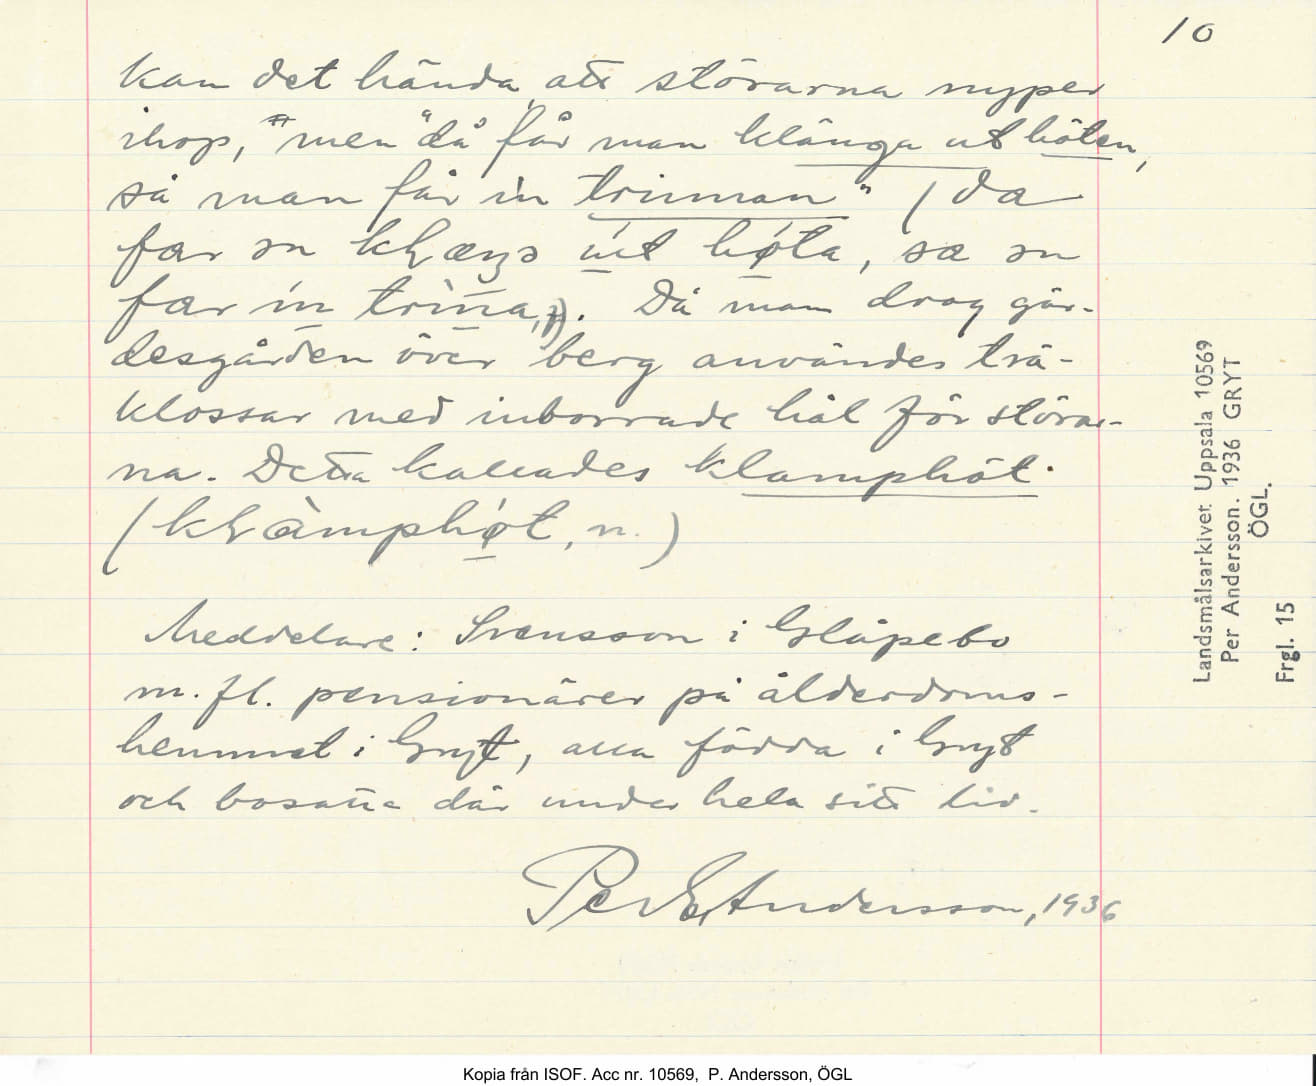 10
kan det hända att störarna nyper
ihop, men "då får man klänga ut höten,
så man får in trinnan" (da
far ɔn kḷæŋɔ út høta, sa ɔn
far ín trìna). Då man drog gär-
desgården över berg användes trä-
klossar med inborrade hål för störar-
na. Detta kallades klamphöt.
(kḷàmphǿt, n.)
Meddelare: Svensson i Glåpebo
m. fl. pensionärer på ålderdoms-
hemmet i Gryt, alla födda i Gryt
och bosatta där under hela sitt liv.
Per E Andersson, 1936
Landsmålsarkivet Uppsala 10569
Per Andersson. 1936 GRYT
ÖGL.
Frgl. 15
Kopia från ISOF. Acc nr. 10569, P. Andersson, ÖGL